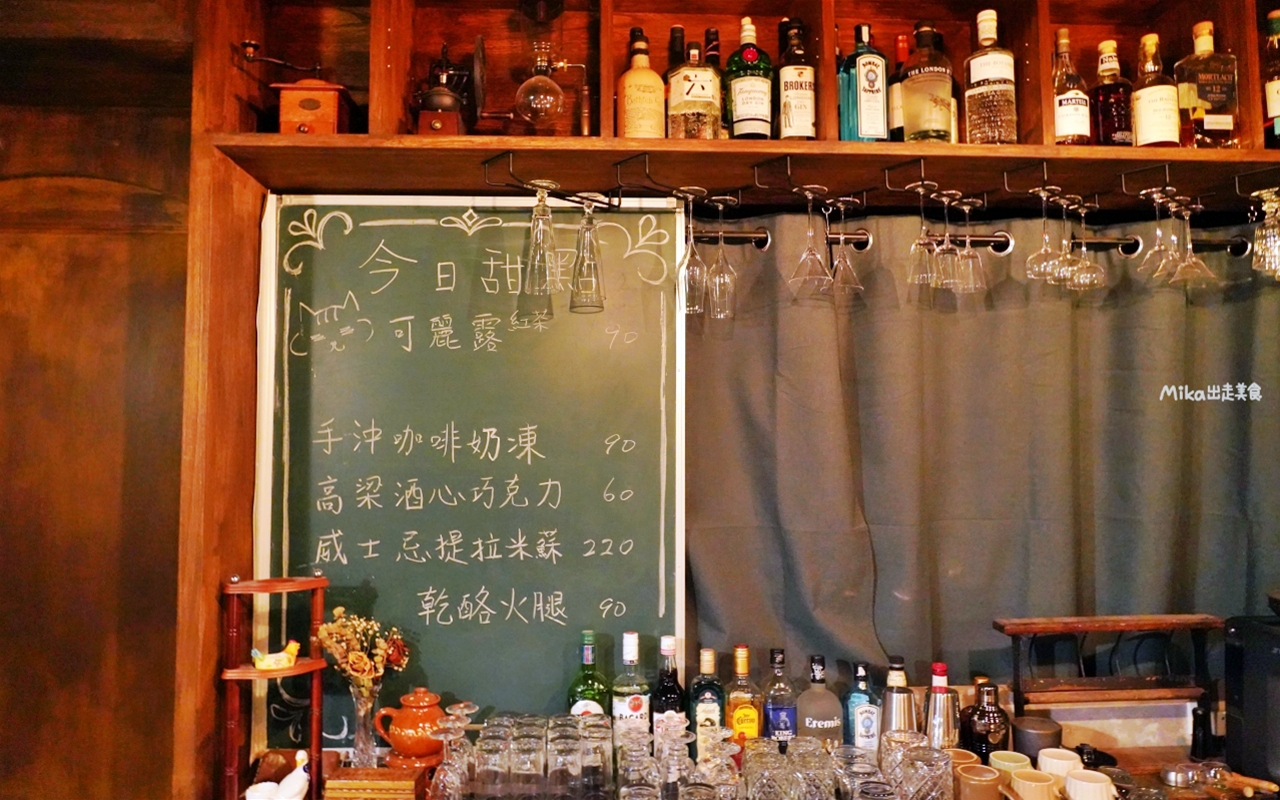 六
Tanqueray
BROKER'S
GIN
BOMBAY
SAPPHIRE
THE LONDON N
MARTINI
MORTLACH
12
今日甜點
可麗露 紅茶 90
手沖咖啡奶凍 90
高梁酒心巧克力 60
威士忌提拉米蘇 220
乾酪火腿 90
Mika出走美食
BACARDI
KING
Eremis
BOMBAY